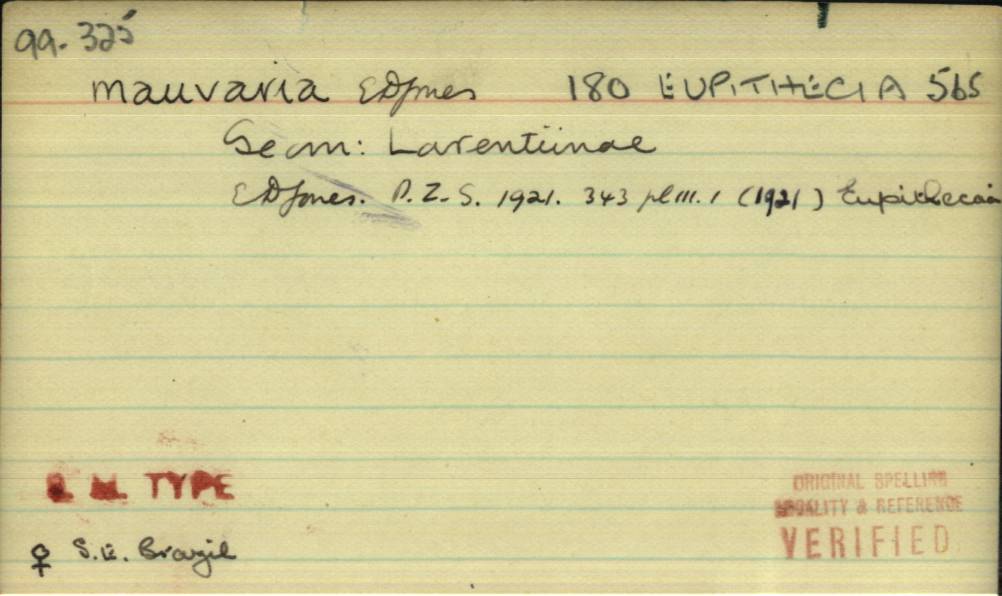 99. 325
mauvaria EDJones 180 EUPITHECIA 565
Geom: Larentiinae
EDJones. P. Z. S. 1921. 343 pl III. 1 (1921) Eupithecia
B. M. TYPE
♀ S.E. Brazil
ORIGINAL SPELLING
LOCALITY & REFERENCE
VERIFIED